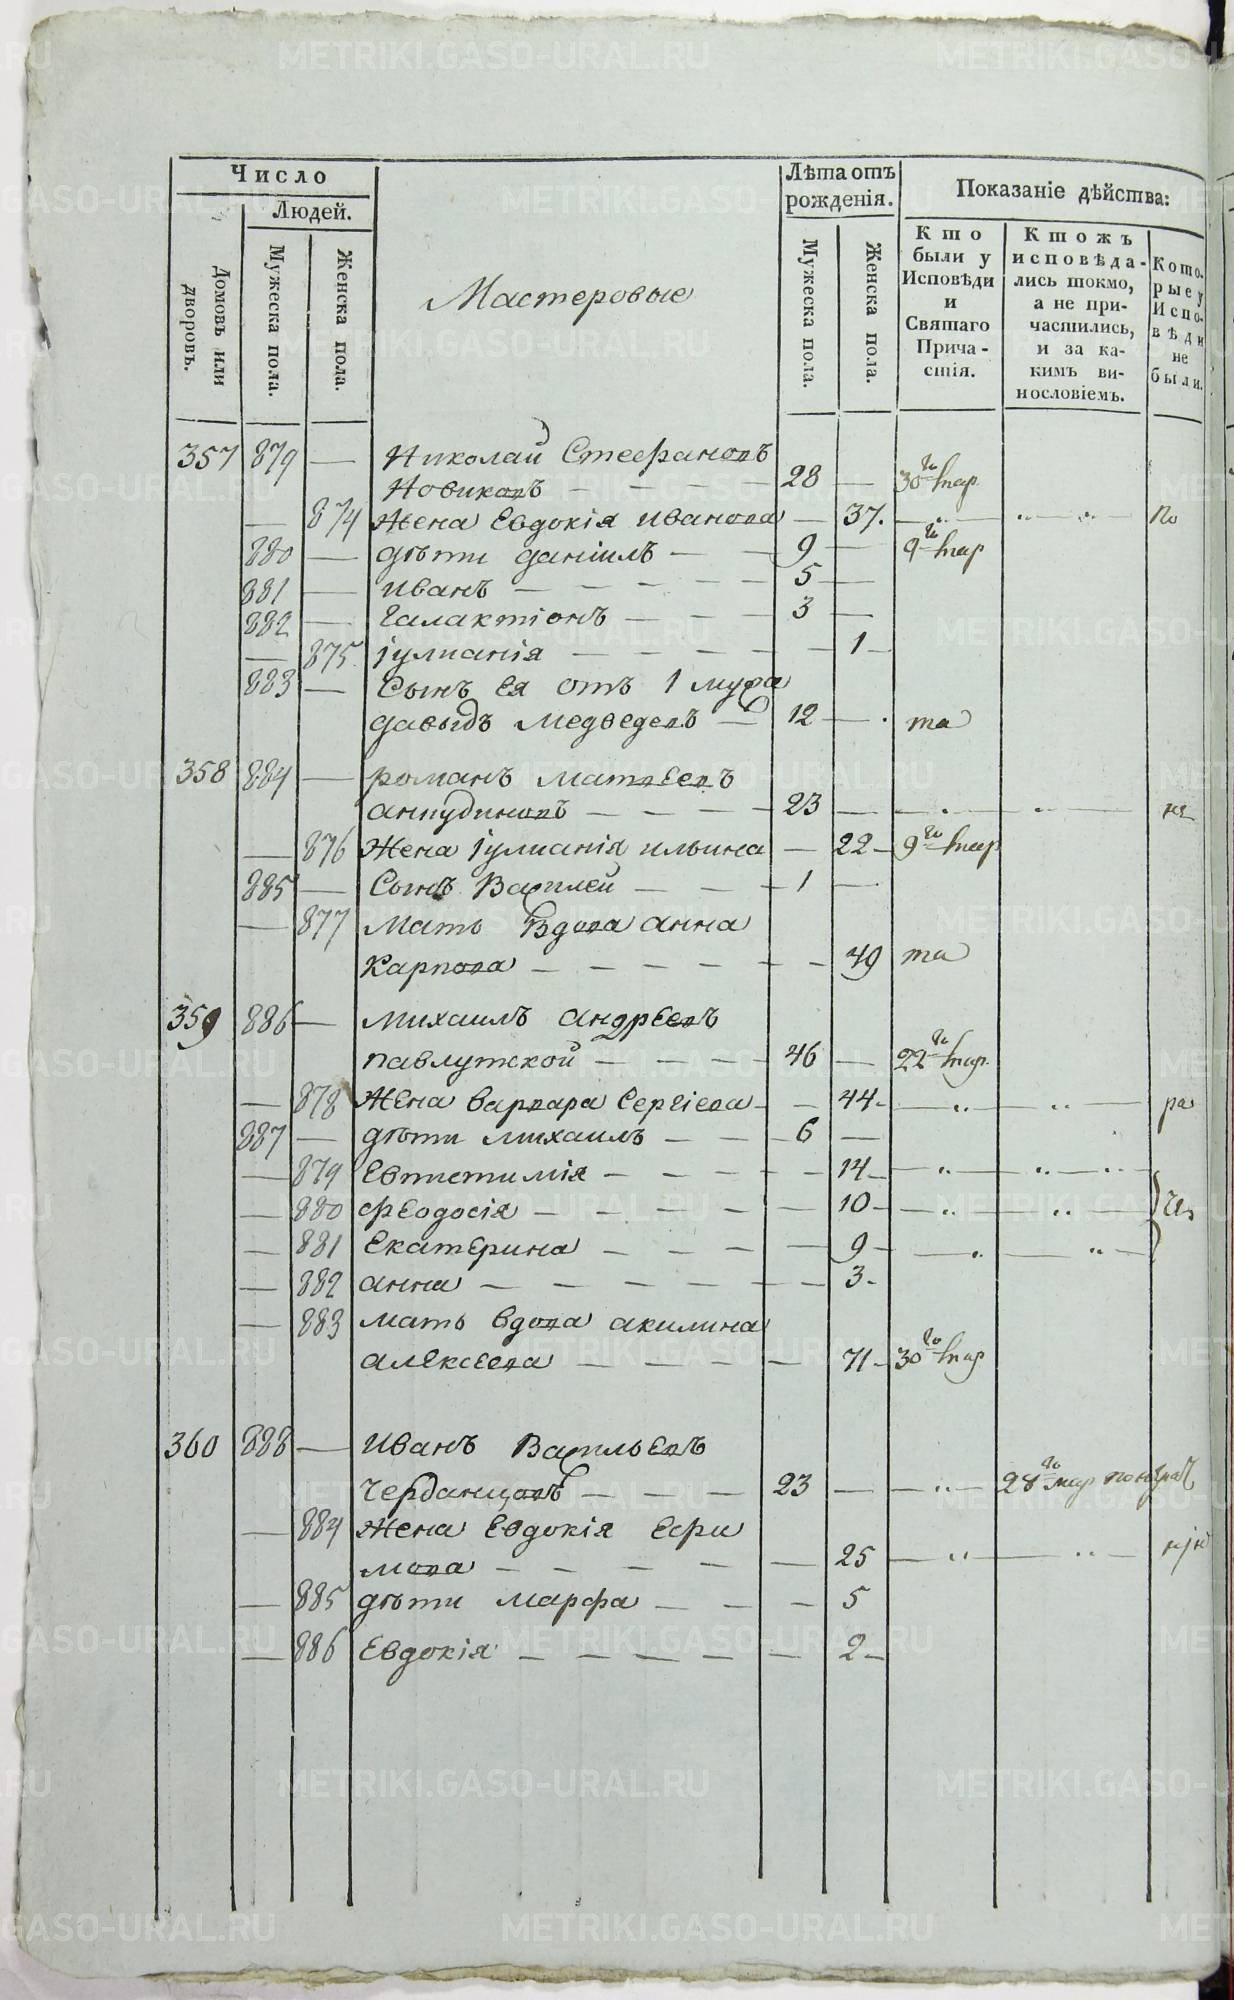 Число
Людей.
Домовъ или дворовъ.
Мужеска пола.
Женска пола.
Мастеровые
Лѣта отъ рожденія.
Мужеска пола.
Женска пола.
Показаніе дѣйства:
Кто были у Исповѣди и Святаго Причастія.
Ктожъ исповѣдались токмо, а не причастились, и за какимъ винословіемъ.
Которые у Исповѣди не были.
357 879 — Николай Стефановъ
Новиковъ — — — 28 — 30го мар
— 874 Жена Евдокія Иванова — 37. — „ — „ — „ — по
880 — дѣти даніилъ — — 9 — 9го мар
881 — иванъ — — — — 5 —
882 — галактіонъ — — — 3 —
— 875 іулианія — — — — — 1 —
883 — Сынъ Ея отъ 1 мужа
давыдъ медведевъ — 12 — та
358 884 — романъ матвеевъ
анкудиновъ — — — — 23 — — „ — „ — не
— 876 Жена іулианія ильина — 22 — 9го мар
885 — Сынъ Василей — — — 1 —
— 877 мать вдова анна
Карпова — — — — — — 49 та
359 886 — михаилъ андреевъ
павлутской — — — — 46 — 22го мар
— 878 Жена варвара Сергіева — — 44 — — „ — „ — ра
887 — дѣти михаилъ — — — 6 —
— 879 Евтистимія — — — — — 14 — — „ — „ — „
— 880 феодосія — — — — — — 10 — — „ — „ —
— 881 Екатерина — — — — 9 — — „ — „ —
— 882 анна — — — — — — 3 —
— 883 мать вдова акилина
алексеева — — — — — 71 — 30го мар
360 888 — Иванъ Васильевъ
Черданцовъ — — — 23 — — „ — 28го мар
— 884 Жена Евдокія Ефи
мова — — — — — 25 — „ — „ —
— 885 дѣти марфа — — — 5
— 886 Евдокія — — — — — — 2 —
METRIKI.GASO-URAL.RU